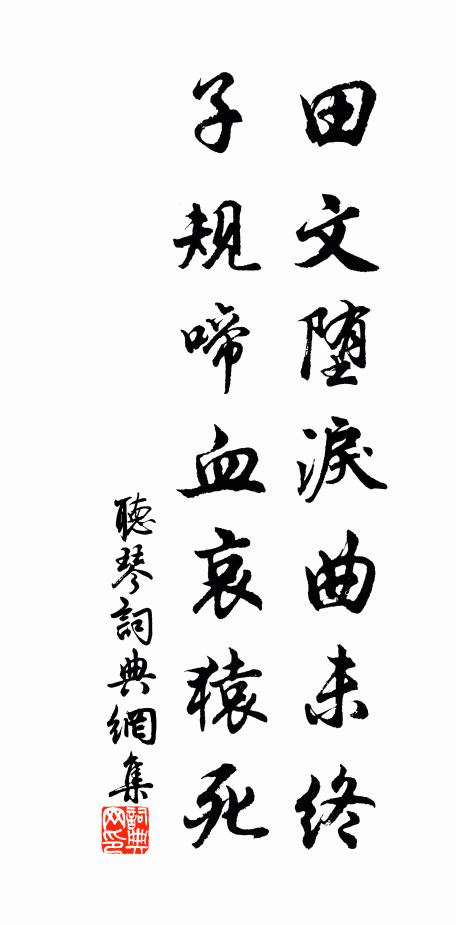 田文堕淚曲未終
子规啼血哀猿死
聽琴詞典網集
詞典网印